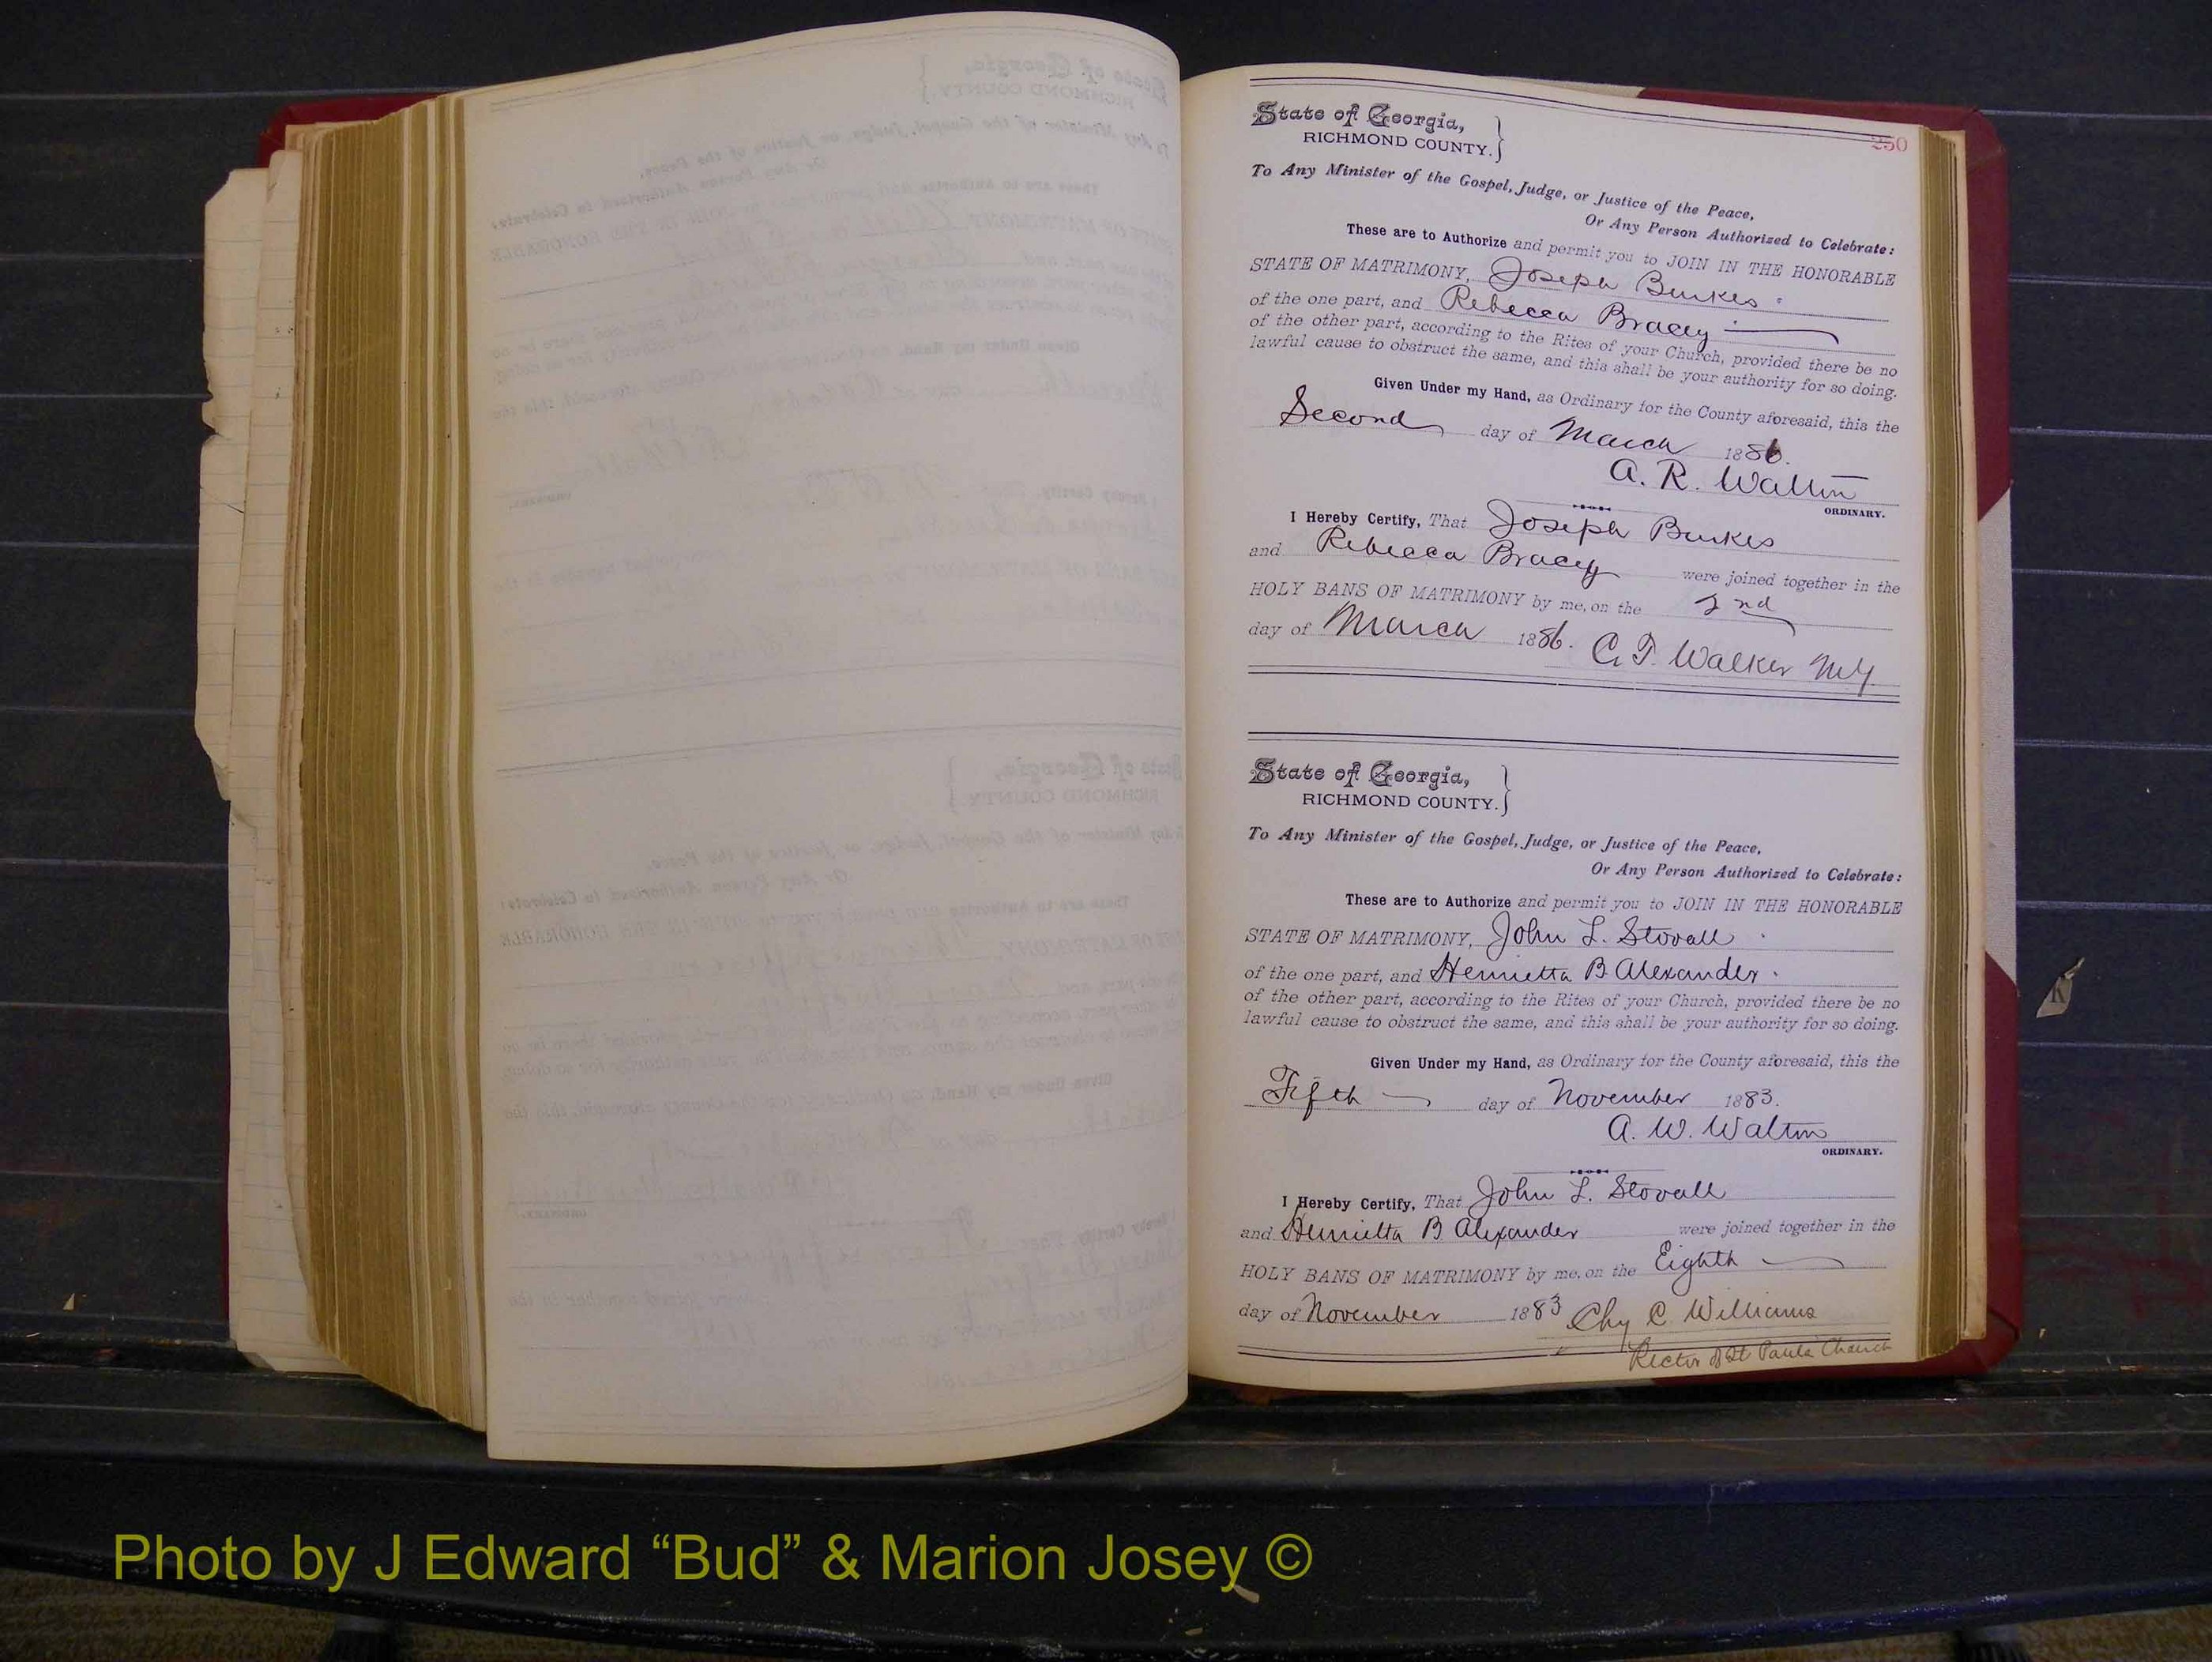 250
State of Georgia,
RICHMOND COUNTY.
To Any Minister of the Gospel, Judge, or Justice of the Peace,
Or Any Person Authorized to Celebrate:
These are to Authorize and permit you to JOIN IN THE HONORABLE
STATE OF MATRIMONY, Joseph Burkes
of the one part, and Rebecca Bracey
of the other part, according to the Rites of your Church, provided there be no
lawful cause to obstruct the same, and this shall be your authority for so doing.
Given Under my Hand, as Ordinary for the County aforesaid, this the
Second day of March 1886.
A. R. Walton
ORDINARY.
I Hereby Certify, That Joseph Burkes
and Rebecca Bracey were joined together in the
HOLY BANS OF MATRIMONY by me, on the 2nd
day of March 1886. C. T. Walker
State of Georgia,
RICHMOND COUNTY.
To Any Minister of the Gospel, Judge, or Justice of the Peace,
Or Any Person Authorized to Celebrate:
These are to Authorize and permit you to JOIN IN THE HONORABLE
STATE OF MATRIMONY, John L. Stovall
of the one part, and Henrietta B. Alexander.
of the other part, according to the Rites of your Church, provided there be no
lawful cause to obstruct the same, and this shall be your authority for so doing.
Given Under my Hand, as Ordinary for the County aforesaid, this the
Fifth day of November 1883.
A. W. Walton
ORDINARY.
I Hereby Certify, That John L. Stovall
and Henrietta B Alexander were joined together in the
HOLY BANS OF MATRIMONY by me, on the Eighth
day of November 1883 C. Williams
Rector of St Pauls Church
Photo by J Edward “Bud” & Marion Josey ©